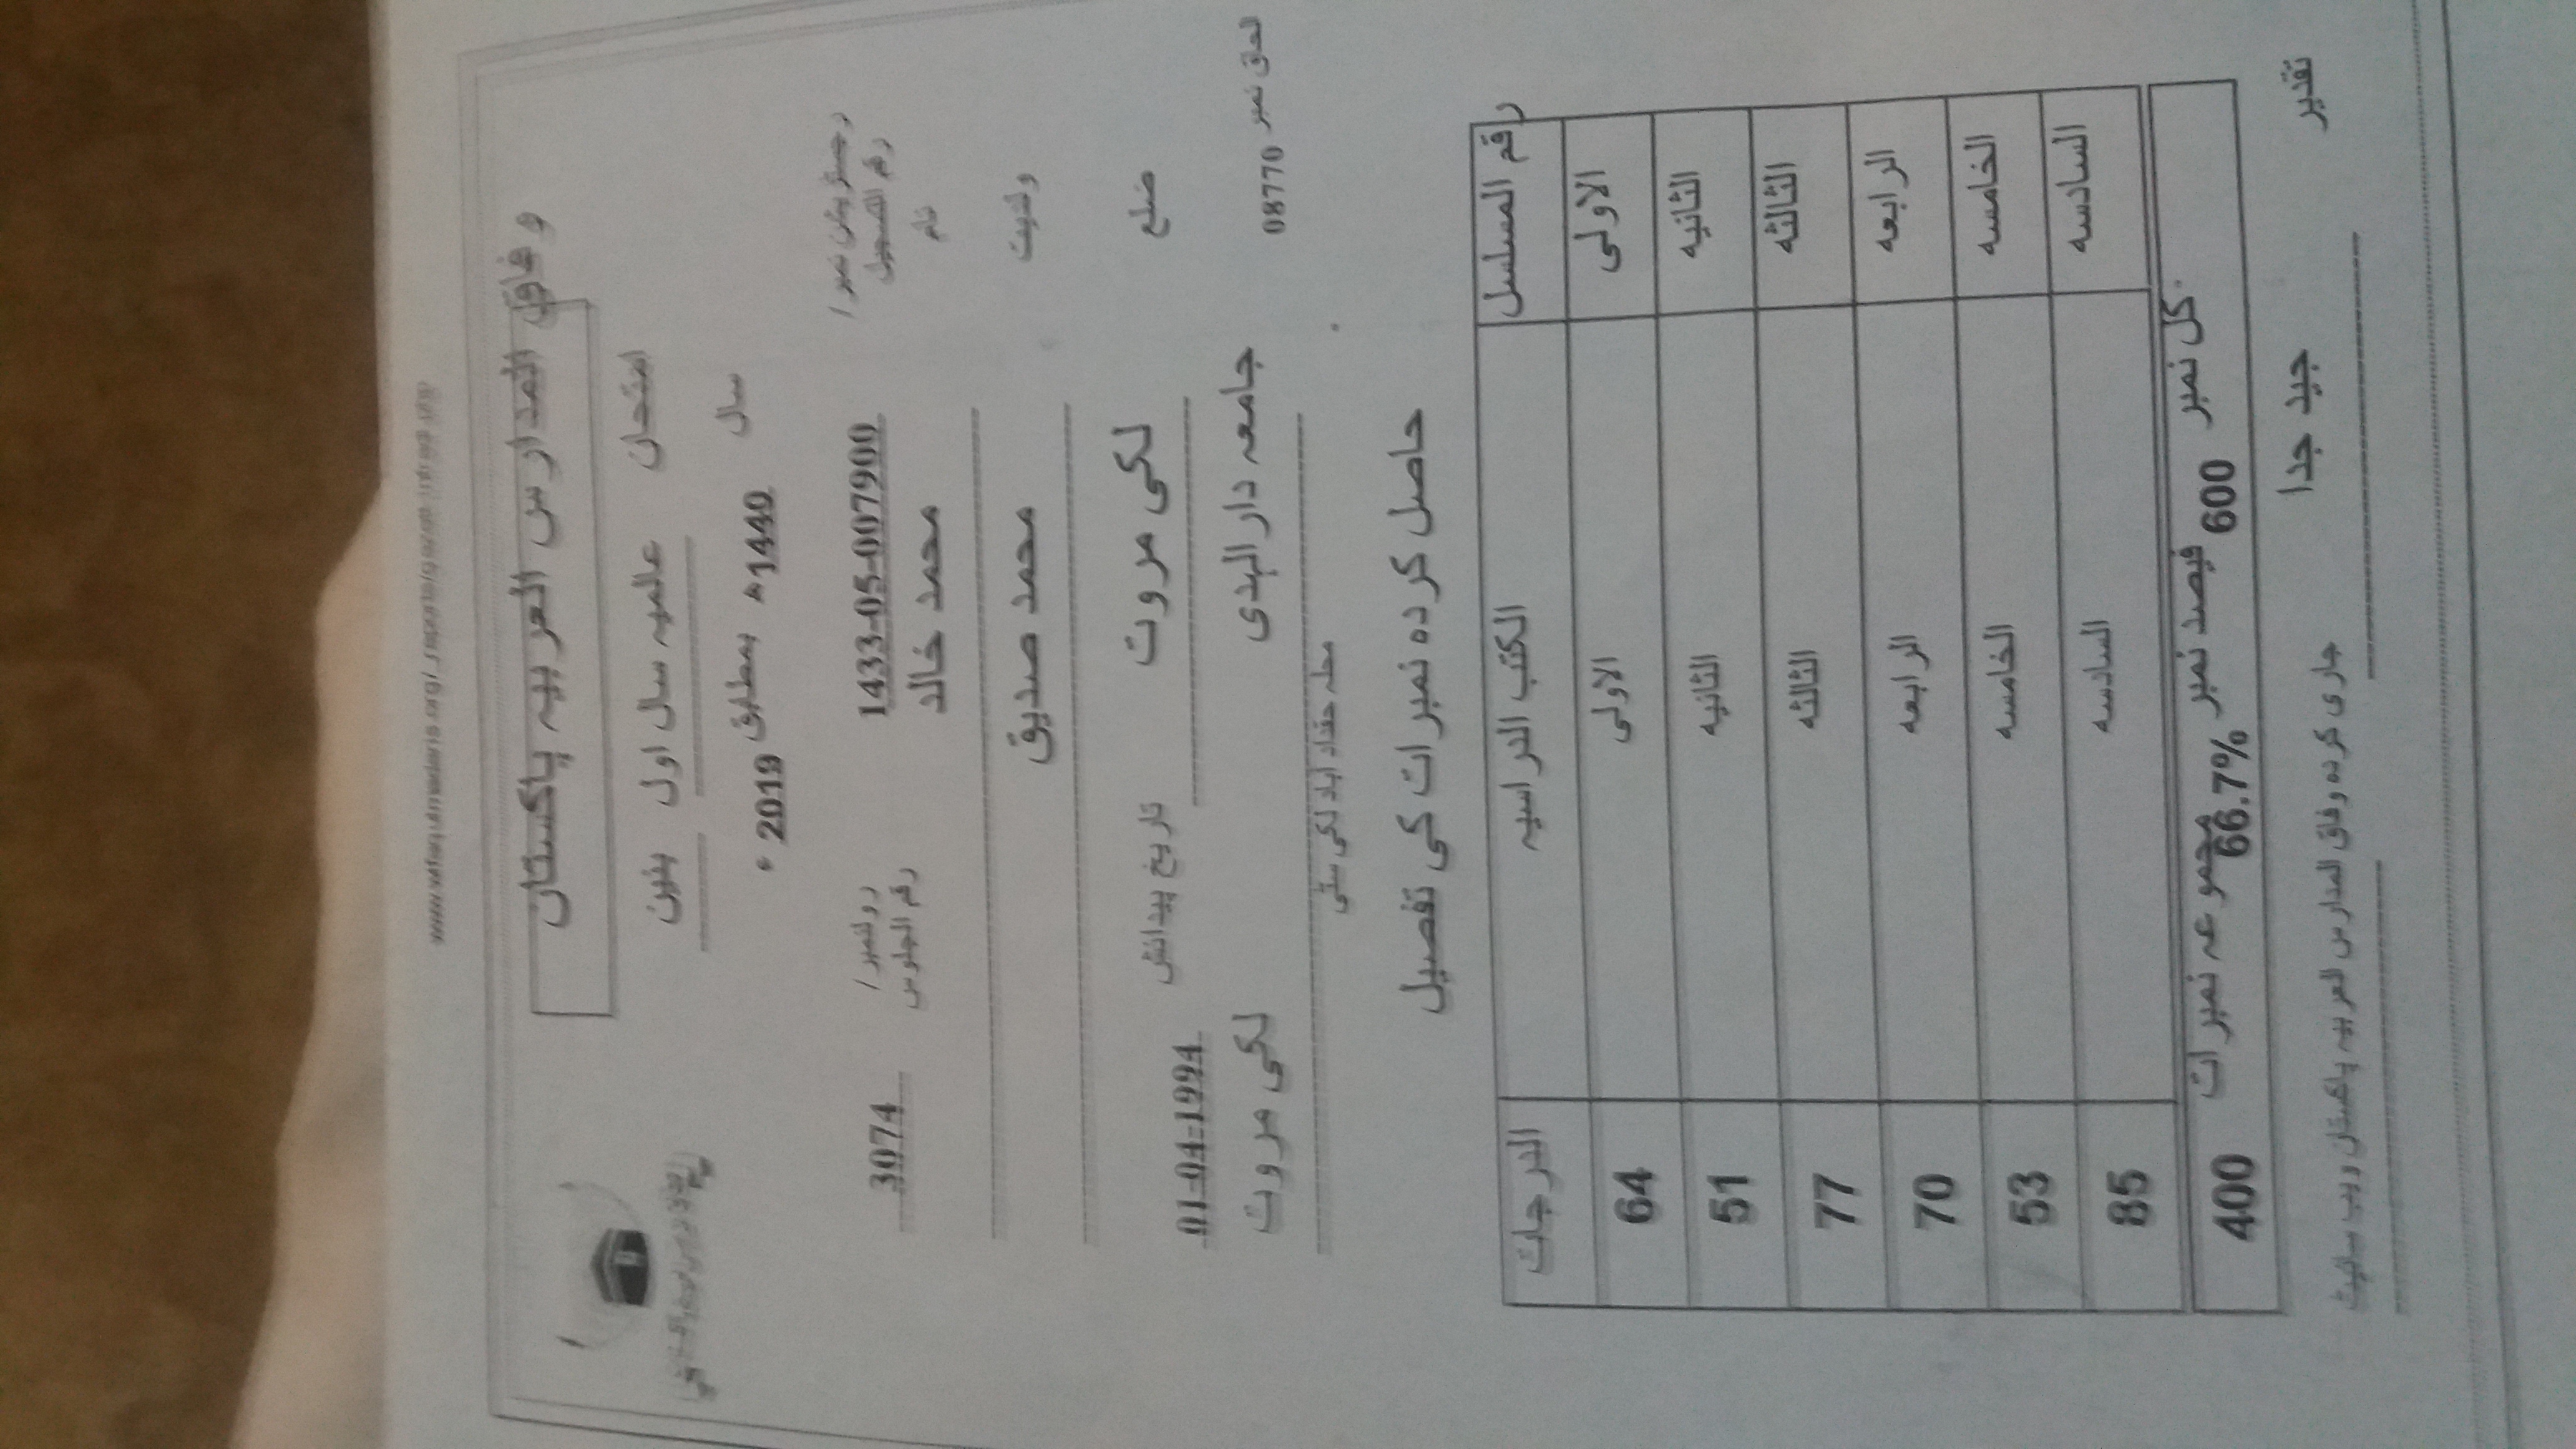 وفاق المدارس العربیہ پاکستان
امتحان عالمیہ سال اول بنین
سال 1440ھ بمطابق 2019ء
رجسٹریشن نمبر / رقم التسجیل 1433-05-007900 رولنمبر / رقم الجلوس 3074
نام محمد خالد
ولدیت محمد صدیق
ضلع لکی مروت تاریخ پیدائش 01-04-1994
الحاق نمبر 08770 جامعہ دار الہدی لکی مروت
محلہ حقداد اباد لکی سٹی
حاصل کردہ نمبرات کی تفصیل
رقم المسلسل الکتب الدراسیہ الدرجات
الاولی الاولی 64
الثانیہ الثانیہ 51
الثالثہ الثالثہ 77
الرابعہ الرابعہ 70
الخامسہ الخامسہ 53
السادسہ السادسہ 85
کل نمبر 600 فیصد نمبر 66.7% مجموعہ نمبرات 400
تقدیر جید جدا
جاری کردہ وفاق المدارس العربیہ پاکستان ویب سائیٹ